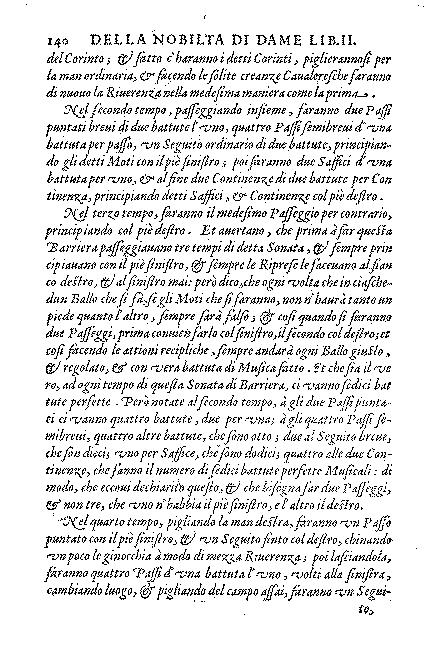 140 DELLA NOBILTA DI DAME LIB.II.
del Corinto; & fatto c'haranno i detti Corinti, piglierannosi per
la man ordinaria, & facendo le solite creanze Caualeresche faranno
di nuouo la Riuerenza nella medesima maniera come la prima.
Nel secondo tempo, passeggiando insieme, faranno due Passi
puntati breui di due battute l'vno, quattro Passi semibreui d'vna
battuta per passo, vn Seguito ordinario di due battute, principian-
do gli detti Moti con il piè sinistro; poi faranno due Saffici d'vna
battuta per vno, & al fine due Continenze di due battute per Con
tinenza, principiando detti Saffici, & Continenze col piè destro.
Nel terzo tempo, faranno il medesimo Passeggio per contrario,
principiando col piè destro. Et auertano, che prima à far questa
Barriera passeggiauano tre tempi di detta Sonata, & sempre prin
cipiauano con il piè sinistro, & sempre le Riprese le faceuano al fian
co destro, & al sinistro mai: però dico, che ogni volta che in ciasche-
dun Ballo che si fà, se gli Moti che si faranno, non n'haurà tanto un
piede quanto l'altro, sempre sarà falso; & così quando si faranno
due Passeggi, prima conuien farlo col sinistro, il secondo col destro; et
così facendo le attioni recipliche, sempre andarà ogni Ballo giusto,
& regolato, & con vera battuta di Musica fatto. Et che sia il ve
ro, ad ogni tempo di questa Sonata di Barriera, ci vanno sedici bat
tute perfette. Però notate al secondo tempo, à gli due Passi punta-
ti ci vanno quattro battute, due per vna; à gli quattro Passi se-
mibreui, quattro altre battute, che sono otto; due al Seguito breue,
che son dieci; vno per Saffice, che sono dodici; quattro alle due Con-
tinenze, che fanno il numero di sedici battute perfette Musicali: di
modo, che eccoui dechiarito questo, & che bisogna far due Passeggi,
& non tre, che vno n'habbia il piè sinistro, e l'altro il destro.
Nel quarto tempo, pigliando la man destra, faranno vn Passo
puntato con il piè sinistro, & vn Seguito finto col destro, chinando
vn poco le ginocchia à modo di mezza Riuerenza; poi lasciandola,
faranno quattro Passi d'vna battuta l'vno, volti alla sinistra,
cambiando luogo, & pigliando del campo assai, faranno vn Segui-
to,